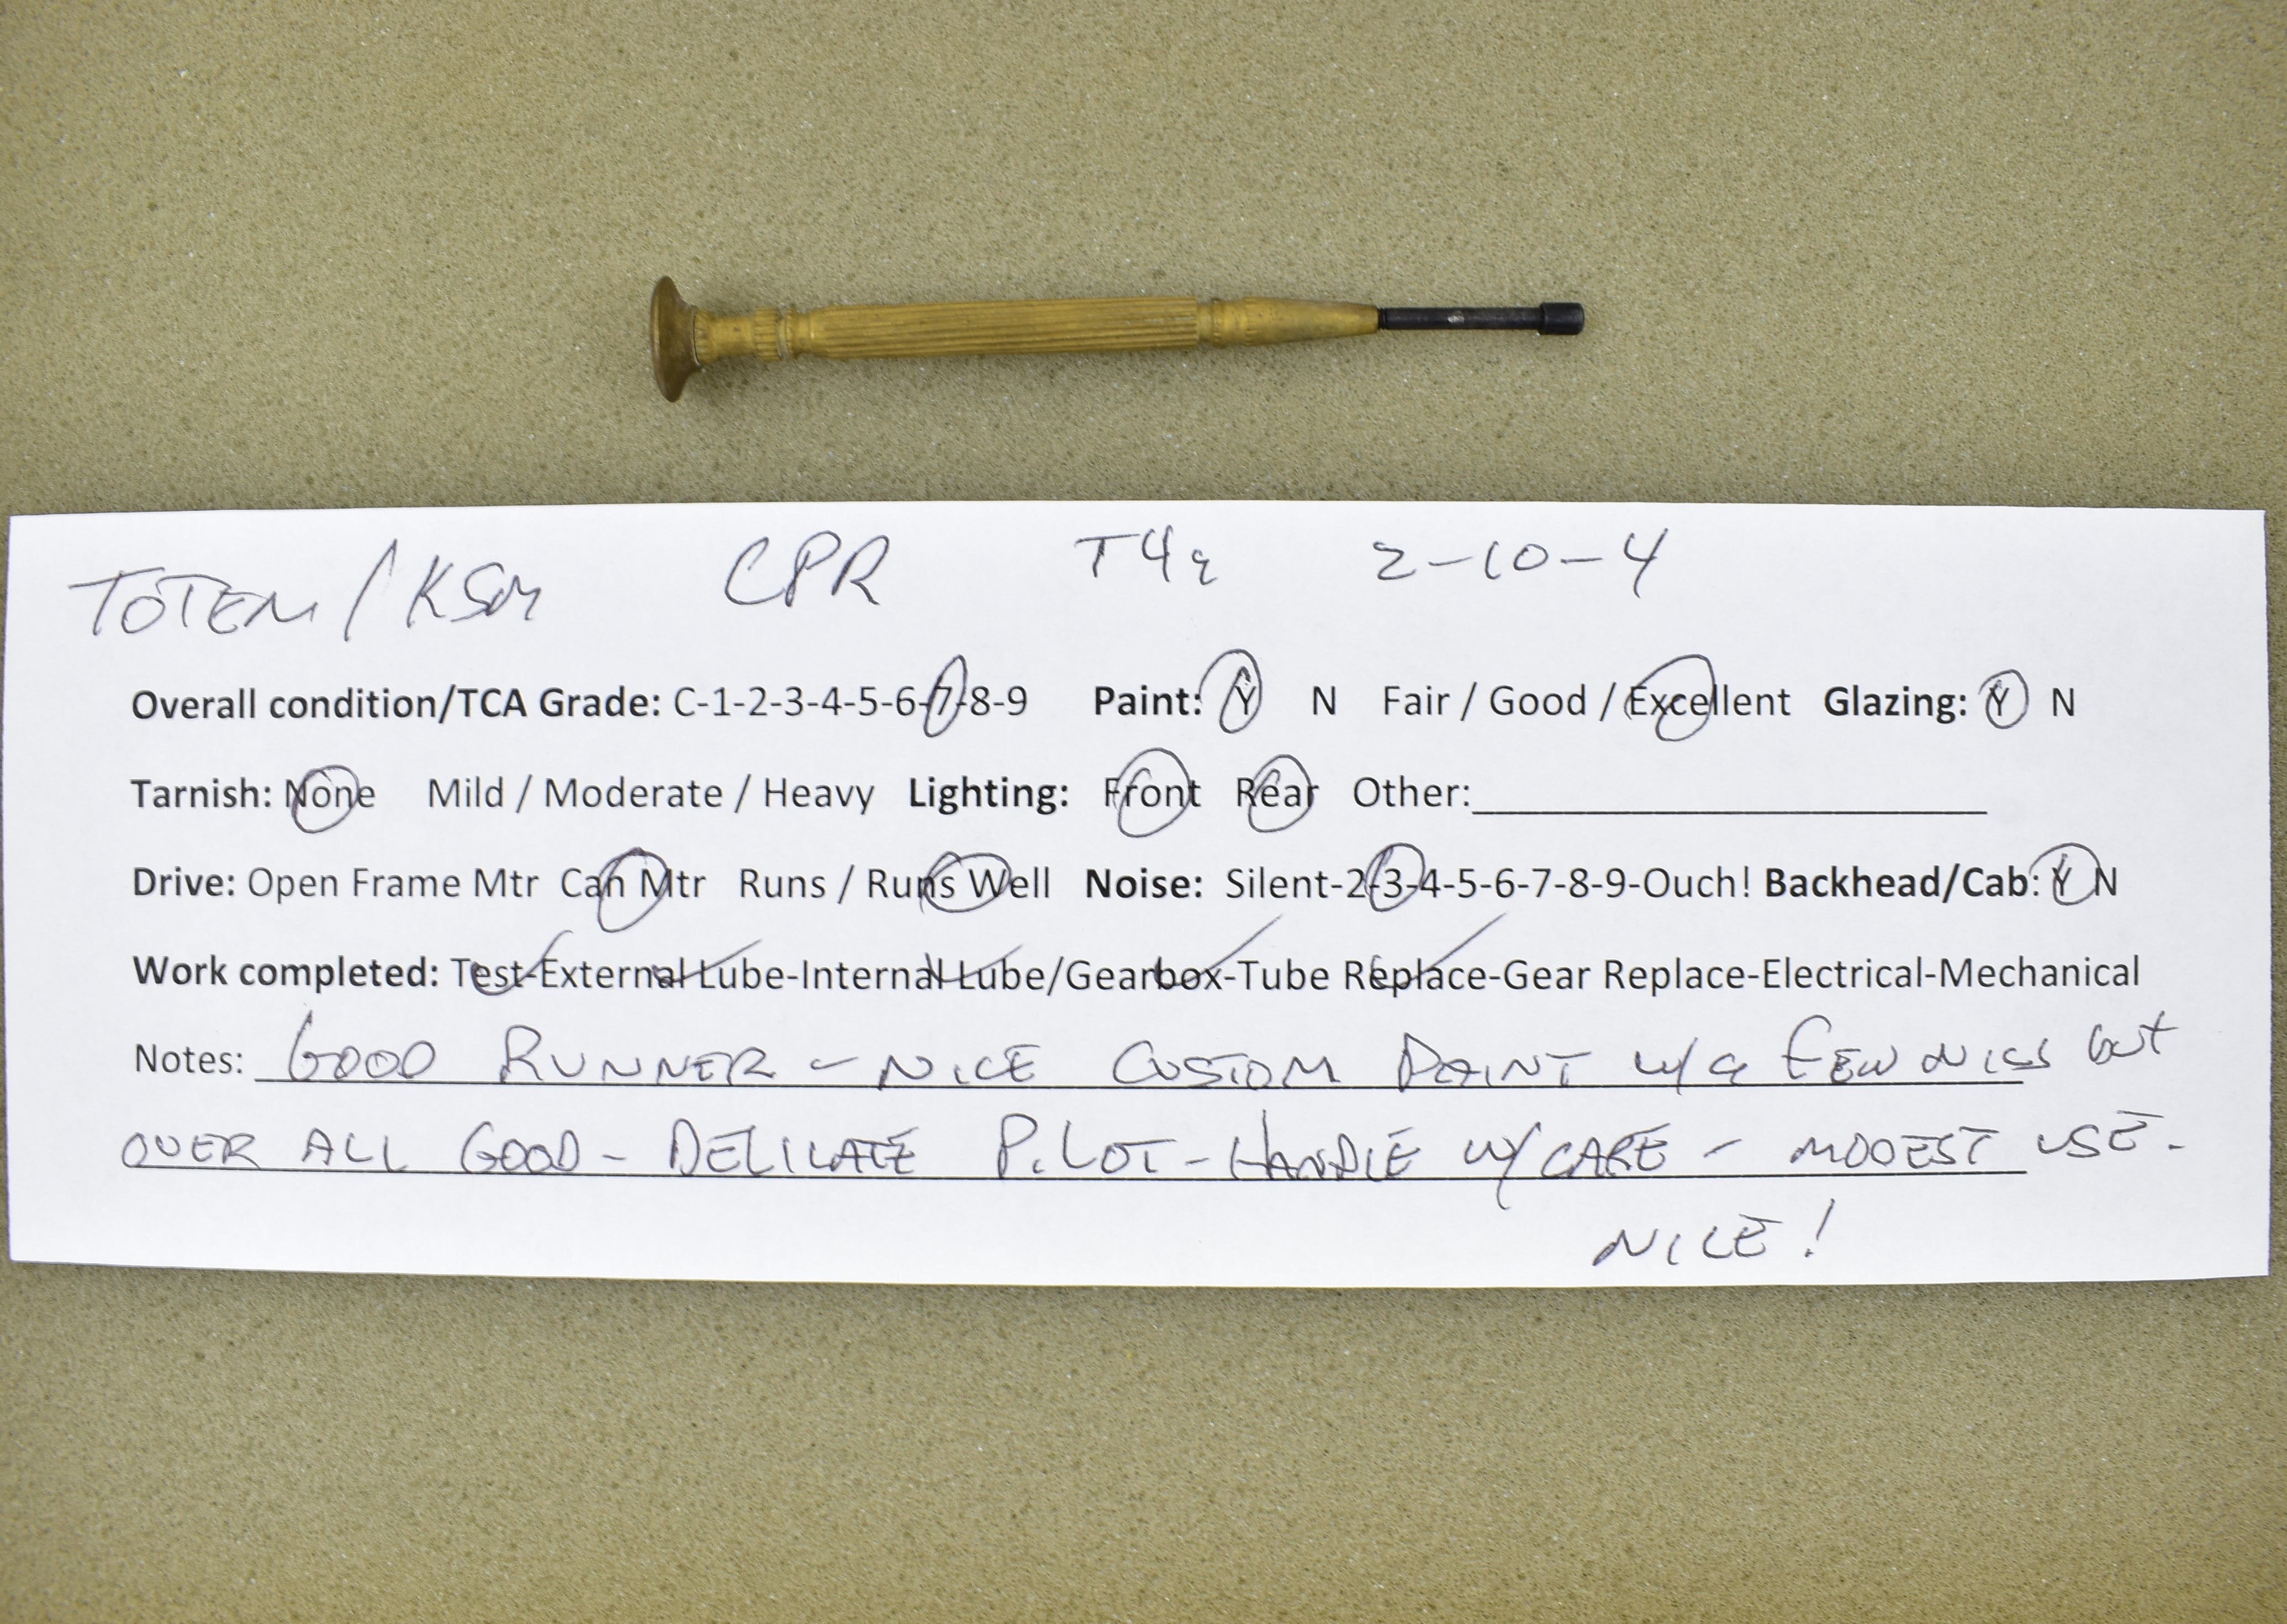 TOTEM / KSM CPR T4a 2-10-4
Overall condition/TCA Grade: C-1-2-3-4-5-6-7-8-9 Paint: Y N Fair / Good / Excellent Glazing: Y N
Tarnish: None Mild / Moderate / Heavy Lighting: Front Rear Other:
Drive: Open Frame Mtr Can Mtr Runs / Runs Well Noise: Silent-2-3-4-5-6-7-8-9-Ouch! Backhead/Cab: Y N
Work completed: Test-External Lube-Internal Lube/Gearbox-Tube Replace-Gear Replace-Electrical-Mechanical
Notes: GOOD RUNNER - NICE CUSTOM PAINT w/a FEW NICKS but
OVER ALL GOOD - DELICATE PILOT - HANDLE W/CARE - MODEST USE -
NICE!